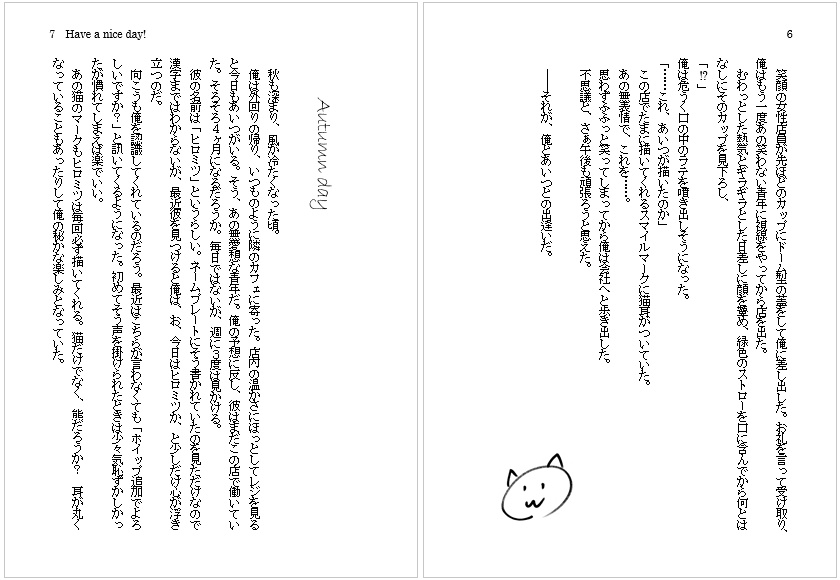 6
笑顔の女性店員が先ほどのカップにドーム型の蓋をして俺に差し出した。お礼を言って受け取り、
俺はもう一度あの笑わない青年に視線をやってから店を出た。
むわっとした熱気とギラギラとした日差しに顔を顰め、緑色のストローを口に含んでから何とは
なしにそのカップを見下ろし、
「!?」
俺は危うく口の中のラテを噴き出しそうになった。
「……これ、あいつが描いたのか」
この店でたまに描いてくれるスマイルマークに猫耳がついていた。
あの無表情で、これを……。
思わずふふっと笑ってしまってから俺は会社へと歩き出した。
不思議と、さぁ午後も頑張ろうと思えた。
――それが、俺とあいつとの出逢いだ。
7 Have a nice day!
Autumn day
秋も深まり、風が冷たくなった頃。
俺は外回りの帰り、いつものように隣のカフェに寄った。店内の温かさにほっとしてレジを見る
と今日もあいつがいる。そう、あの無愛想な青年だ。俺の予想に反し、彼はまだこの店で働いてい
た。そろそろ4ヶ月になるだろうか。毎日ではないが、週に3度は見かける。
彼の名前は「ヒロミツ」というらしい。ネームプレートにそう書かれていたのを見ただけなので
漢字まではわからないが、最近彼を見つけると俺は、お、今日はヒロミツか、と少しだけ心が浮き
立つのだ。
向こうも俺を認識してくれているのだろう。最近はこちらが言わなくても「ホイップ追加でよろ
しいですか?」と訊いてくるようになった。初めてそう声を掛けられたときは少々気恥ずかしかっ
たが慣れてしまえば楽でいい。
あの猫のマークもヒロミツは毎回必ず描いてくれる。猫だけでなく、熊だろうか? 耳が丸く
なっていることもあったりして俺の秘かな楽しみとなっていた。